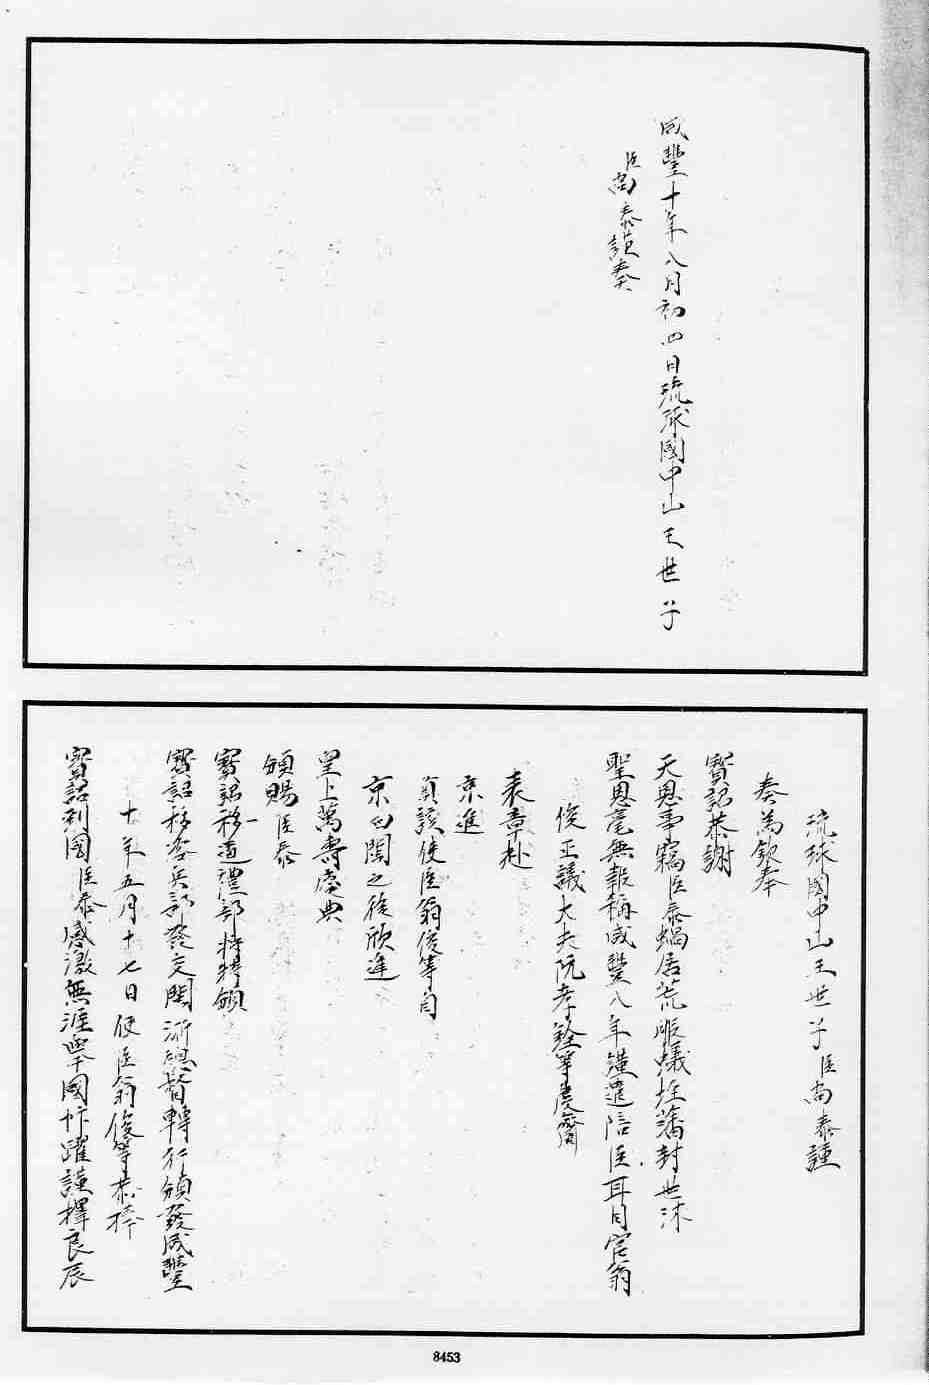 咸豐十年八月初四日琉球國中山王世子
臣尚泰謹奏
琉球國中山王世子臣尚泰謹
奏為欽奉
寳詔恭謝
天恩事竊臣泰蝸居荒服蟻垤藩封世沐
聖恩毫無報稱咸豐八年謹遣陪臣耳目官翁
俊正議大夫阮孝銓等虔齎
表章赴
京進
貢該使臣翁俊等自
京回閩之後欣逢
皇上萬壽慶典
頒賜臣泰
寳詔移道禮部將特頒
寳詔移咨兵部發交閩浙總督轉行頒發咸豐
十年五月十七日使臣翁俊等恭捧
寳詔到國臣泰感激無涯舉國忭躍謹擇良辰
8453